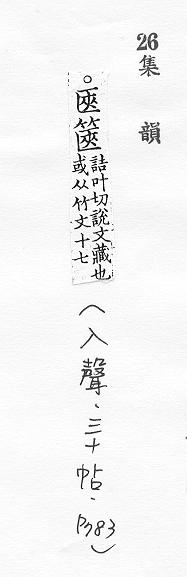 26
集韻
。匧篋詰叶切說文藏也
或从竹文十七
(入聲、三十帖、P783)